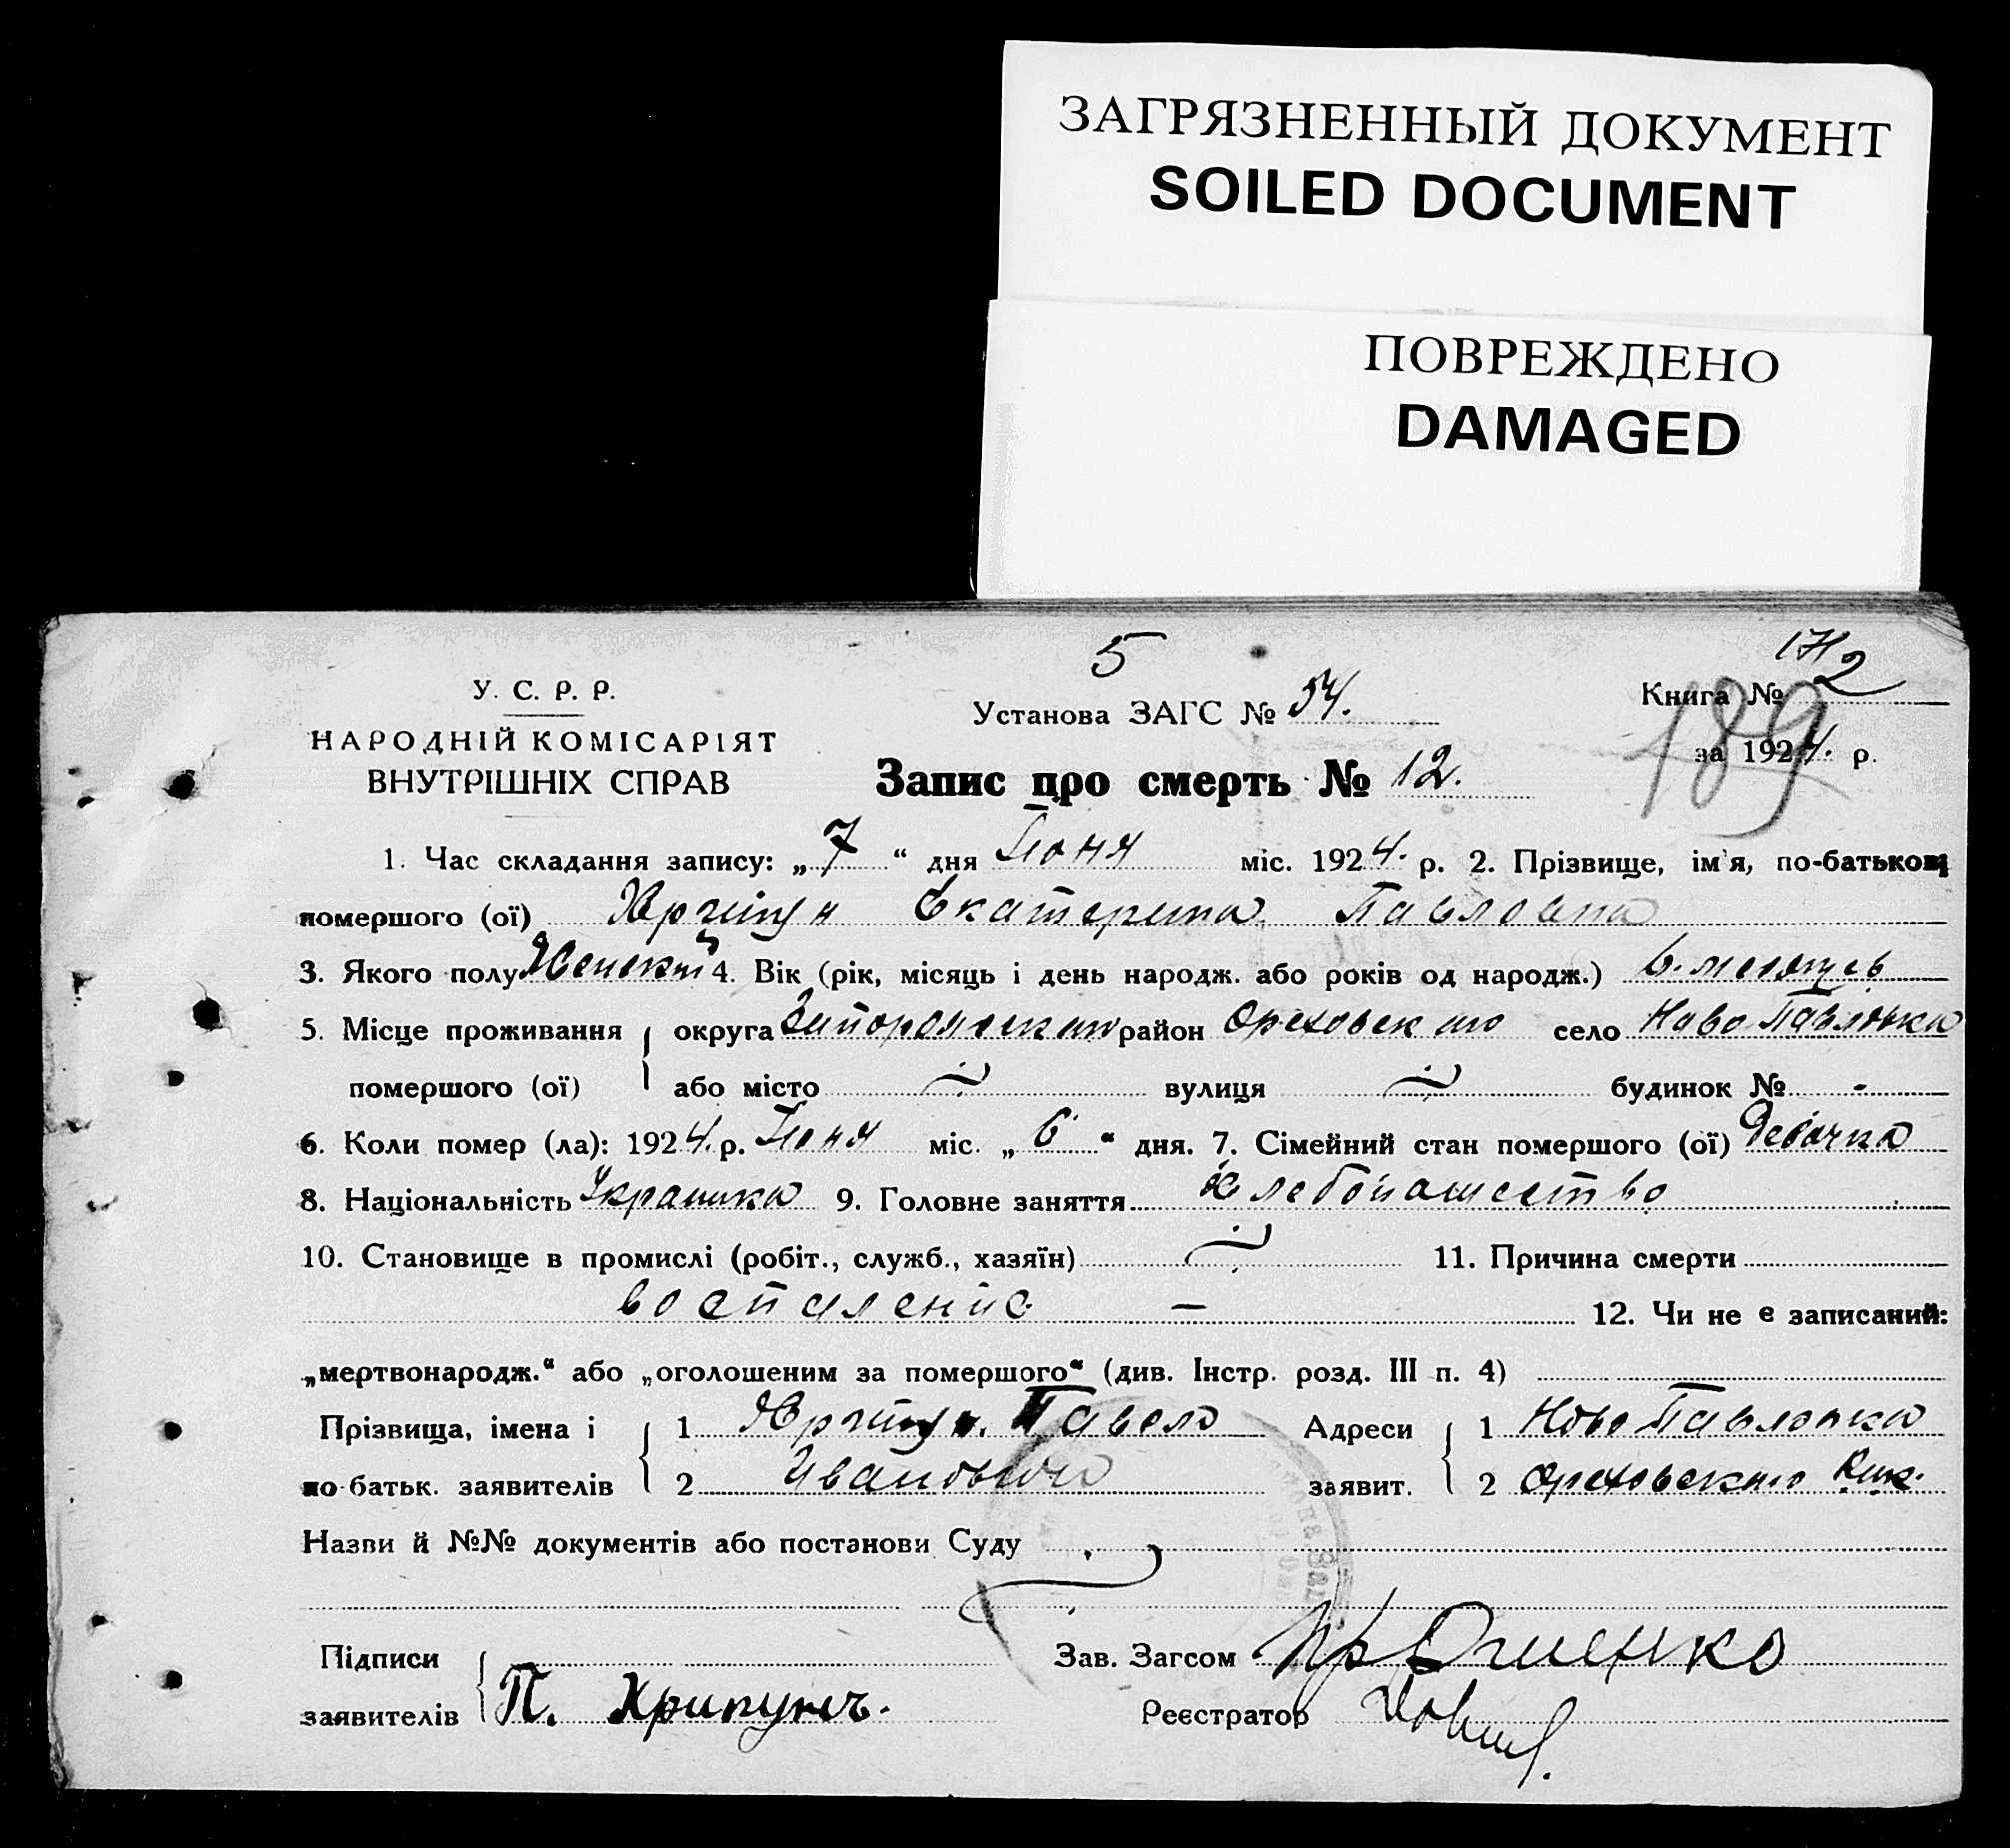 ЗАГРЯЗНЕННЫЙ ДОКУМЕНТ
SOILED DOCUMENT
ПОВРЕЖДЕНО
DAMAGED
5
У. С. Р. Р.
Установа ЗАГС № 54.
Книга № 2
189
НАРОДНІЙ КОМІСАРІЯТ
за 1924. р.
ВНУТРІШНІХ СПРАВ
Запис про смерть № 12.
1. Час складання запису: „7“ дня Июня міс. 1924. р. 2. Прізвище, ім'я, по-батькові
помершого (ої) Хрипун Екатерина Павловна
3. Якого полу Женский 4. Вік (рік, місяць і день народж. або років од народж.) 6. месяцев
5. Місце проживання округа Запорожского район Ореховского село Ново Павловка
помершого (ої) або місто вулиця будинок № -
6. Коли помер (ла): 1924. р. Июня міс. „6“ дня. 7. Сімейний стан помершого (ої) Девочка
8. Національність Украинка 9. Головне заняття Хлебопашество
10. Становище в промислі (робіт., служб., хазяїн) 11. Причина смерти
воспаление —
12. Чи не є записаний:
„мертвонародж.“ або „оголошеним за помершого“ (див. Інстр. розд. III п. 4)
Прізвища, імена і 1 Хрипун. Павел Адреси 1 Ново Павловка
по батьк. заявителів 2 Иванович заявит. 2 Ореховского
Назви й №№ документів або постанови Суду
Підписи Зав. Загсом
заявителів П. Хрипунъ. Реєстратор